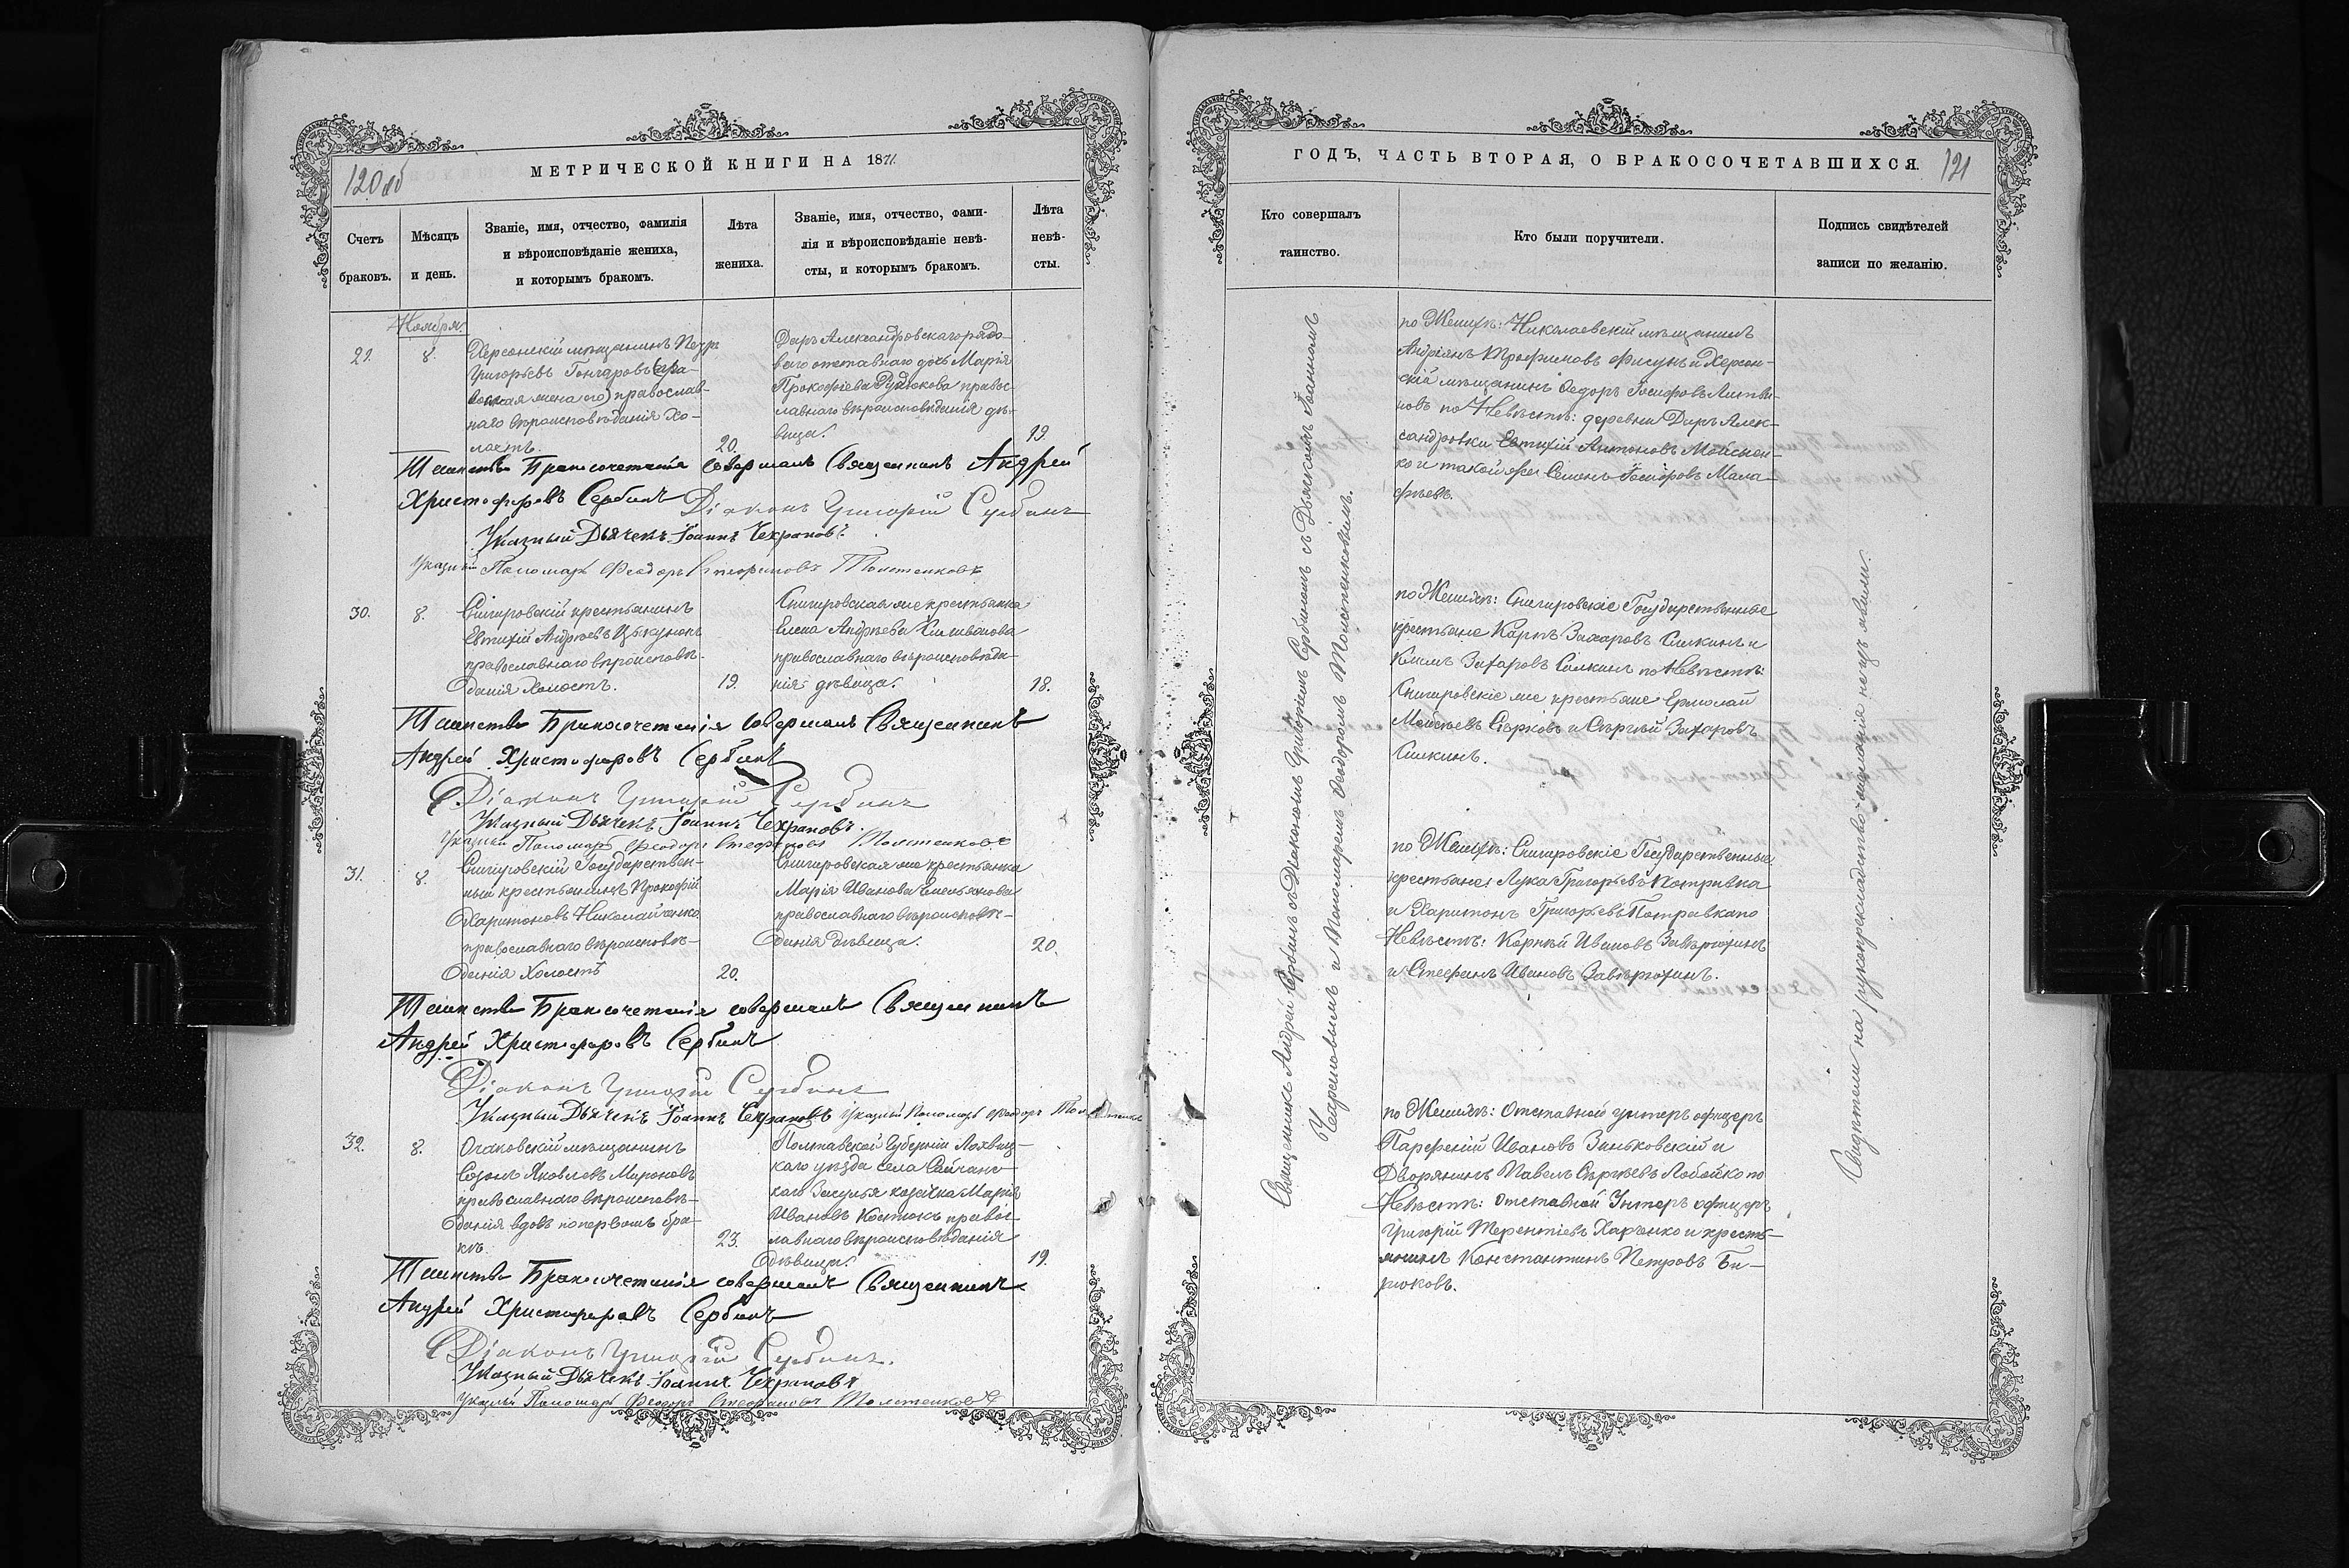 МЕТРИЧЕСКОЙ КНИГИ НА 1871
120об
Счетъ браковъ.
Мѣсяцъ и день.
Званіе, имя, отчество, фамилія и вѣроисповѣданіе жениха, и которымъ бракомъ.
Лѣта жениха.
Званіе, имя, отчество, фамилія и вѣроисповѣданіе невѣсты, и которымъ бракомъ.
Лѣта невѣсты.
Ноября
29.
8.
Херсонскій мѣщанинъ Петръ
Григорьевъ Гончаровъ
православ-
наго вѣроисповѣданія Хо-
лостъ.
20.
Даръ Александровскаго рядо-
ваго отставнаго дочь Марія
Прокофіева Рудюкова правос-
лавнаго вѣроисповѣданія дѣ-
вица.
19.
Таинство Бракосочетанія совершалъ Священникъ Андрей
Христофоровъ Сербинъ Діаконъ Григорій Сербинъ
Указный Дьячекъ Іоаннъ Чехрановъ.
Указный Пономарь Ѳеодоръ Стефановъ Толстенковъ
30.
8.
Снигировскій крестьянинъ
Евтихій Андреевъ
православнаго вѣроисповѣ-
данія Холостъ.
19.
Снигировская же крестьянка
Елена Андреева
православнаго вѣроисповѣда-
нія дѣвица.
18.
Таинство Бракосочетанія совершалъ Священникъ
Андрей Христофоровъ Сербинъ
Діаконъ Григорій Сербинъ
Указный Дьячекъ Іоаннъ Чехрановъ.
Указный Пономарь Ѳеодоръ Стефановъ Толстенковъ
31.
8.
Снигировскій Государствен-
ный крестьянинъ Прокофій
Харитоновъ Николайченко
православнаго вѣроисповѣ-
данія Холостъ
20.
Снигировская же крестьянка
Марія Иванова Емельянова
православнаго вѣроисповѣ-
данія дѣвица.
20.
Таинство Бракосочетанія совершалъ Священникъ
Андрей Христофоровъ Сербинъ
Діаконъ Григорій Сербинъ
Указный Дьячекъ Іоаннъ Чехрановъ Указный Пономарь Ѳеодоръ Толстенковъ
32.
8.
Очаковскій мѣщанинъ
Созонъ Яковлевъ Мироновъ
православнаго вѣроисповѣ-
данія вдовъ по первомъ бра-
кѣ.
23.
Полтавской Губерніи Лохвиц-
каго уѣзда села
козачка Марія
Иванова Костюкъ правос-
лавнаго вѣроисповѣданія
дѣвица.
19.
Таинство Бракосочетанія совершалъ Священникъ
Андрей Христофоровъ Сербинъ
Діаконъ Григорій Сербинъ.
Указный Дьячекъ Іоаннъ Чехрановъ
Указный Пономарь Ѳеодоръ Стефановъ Толстенковъ
ГОДЪ, ЧАСТЬ ВТОРАЯ, О БРАКОСОЧЕТАВШИХСЯ.
121
Кто совершалъ таинство.
Кто были поручители.
Подпись свидѣтелей записи по желанію.
Священникъ Андрей Сербинъ съ Діакономъ Григоріемъ Сербинымъ съ Дьячкомъ Іоанномъ
Чехрановымъ и Пономаремъ Ѳеодоромъ Толстенковымъ.
по Женихѣ: Николаевскій мѣщанинъ
Андріянъ Трофимовъ Фисунъ и Херсон-
скій мѣщанинъ Ѳедоръ Іосифовъ Литви-
новъ по Невѣстѣ: деревни Даръ Алек-
сандровки Евтихій Антоновъ Мойсеен-
ко и такой же Семенъ Іосифовъ Мала-
фѣевъ.
по Женихѣ: Снигировскіе Государственные
крестьяне Карпъ Захаровъ Силкинъ и
Климъ Захаровъ Силкинъ по Невѣстѣ:
Снигировскіе же крестьяне Ермолай
Мойсѣевъ Сѣрковъ и Сергѣй Захаровъ
Силкинъ.
по Женихѣ: Снигировскіе Государственные
крестьяне: Лука Григорьевъ Потривка
и Харитонъ Григорьевъ Потравка по
Невѣстѣ: Корнѣй Ивановъ Завѣрюхинъ
и Стефанъ Ивановъ Завѣрюхинъ.
по Женихѣ: Отставной унтеръ офицеръ
Парфеній Ивановъ Зиньковскій и
Дворянинъ Павелъ Сергѣевъ Лобойко по
Невѣстѣ: отставной Унтеръ офицеръ
Григорій Терентіевъ Харченко и кресть-
янинъ Константинъ Петровъ Би-
рюковъ.
Свидѣтели на рукоприкладство желанія не изъявили.